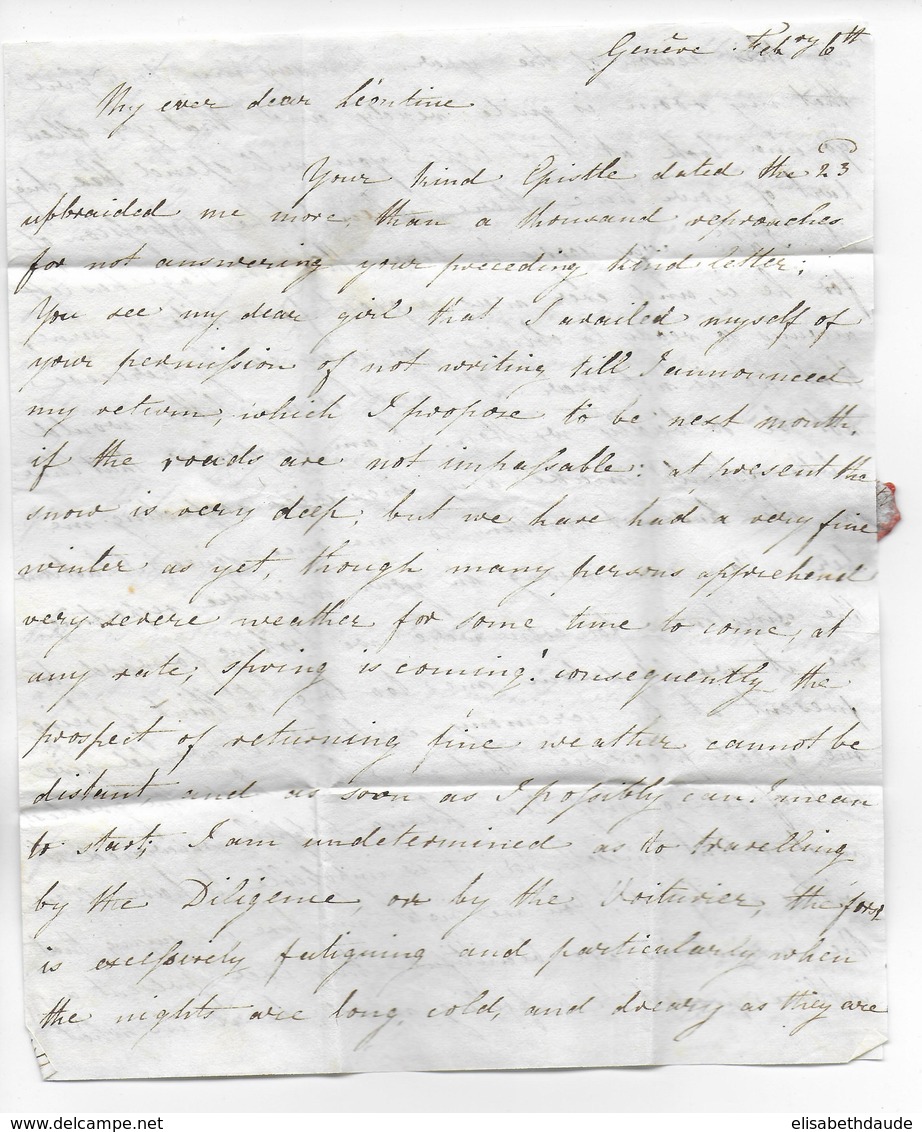 Genêve. Feb.ry 6th
My ever dear Léontine
Your kind Epistle dated the 23
upbraided me more, than a thousand reproaches
for not answering your preceding kind letter;
You see my dear girl that I availed myself of
your permission of not writing till I announced
my return, which I propose to be next month,
if the roads are not impassable: at present the
snow is very deep, but we have had a very fine
winter as yet, though many persons apprehend
very severe weather for some time to come, at
any rate, spring is coming! consequently the
prospect of returning fine weather cannot be
distant, and as soon as I possibly can I mean
to start; I am undetermined as to travelling
by the Diligence, or by the Voiturier, the first
is excessively fatiguing and particularly when
the nights are long, cold, and dreary as they are
elisabethdaude